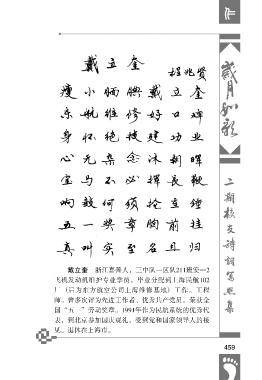 作
戴立奎
杨兆贤
瘦小腼腆戴立奎
东航维修好口碑
身怀绝技建功业
心无杂念沐朝晖
宝马不必挥长鞭
响鼓何须抡重锤
五一奖章胸前挂
真叫实至名且归
戴立奎 浙江嘉善人，三中队一区队211班安-2
飞机发动机维护专业学员。毕业分配到上海民航102
厂（后为东方航空公司上海维修基地）工作。工程
师。曾多次评为先进工作者、优秀共产党员。荣获全
国“五一”劳动奖章。1991年作为民航系统的优秀代
表，到北京参加国庆观礼，受到党和国家领导人的接
见。退休在上海市。
岁月如歌
二期校友诗词写照集
459